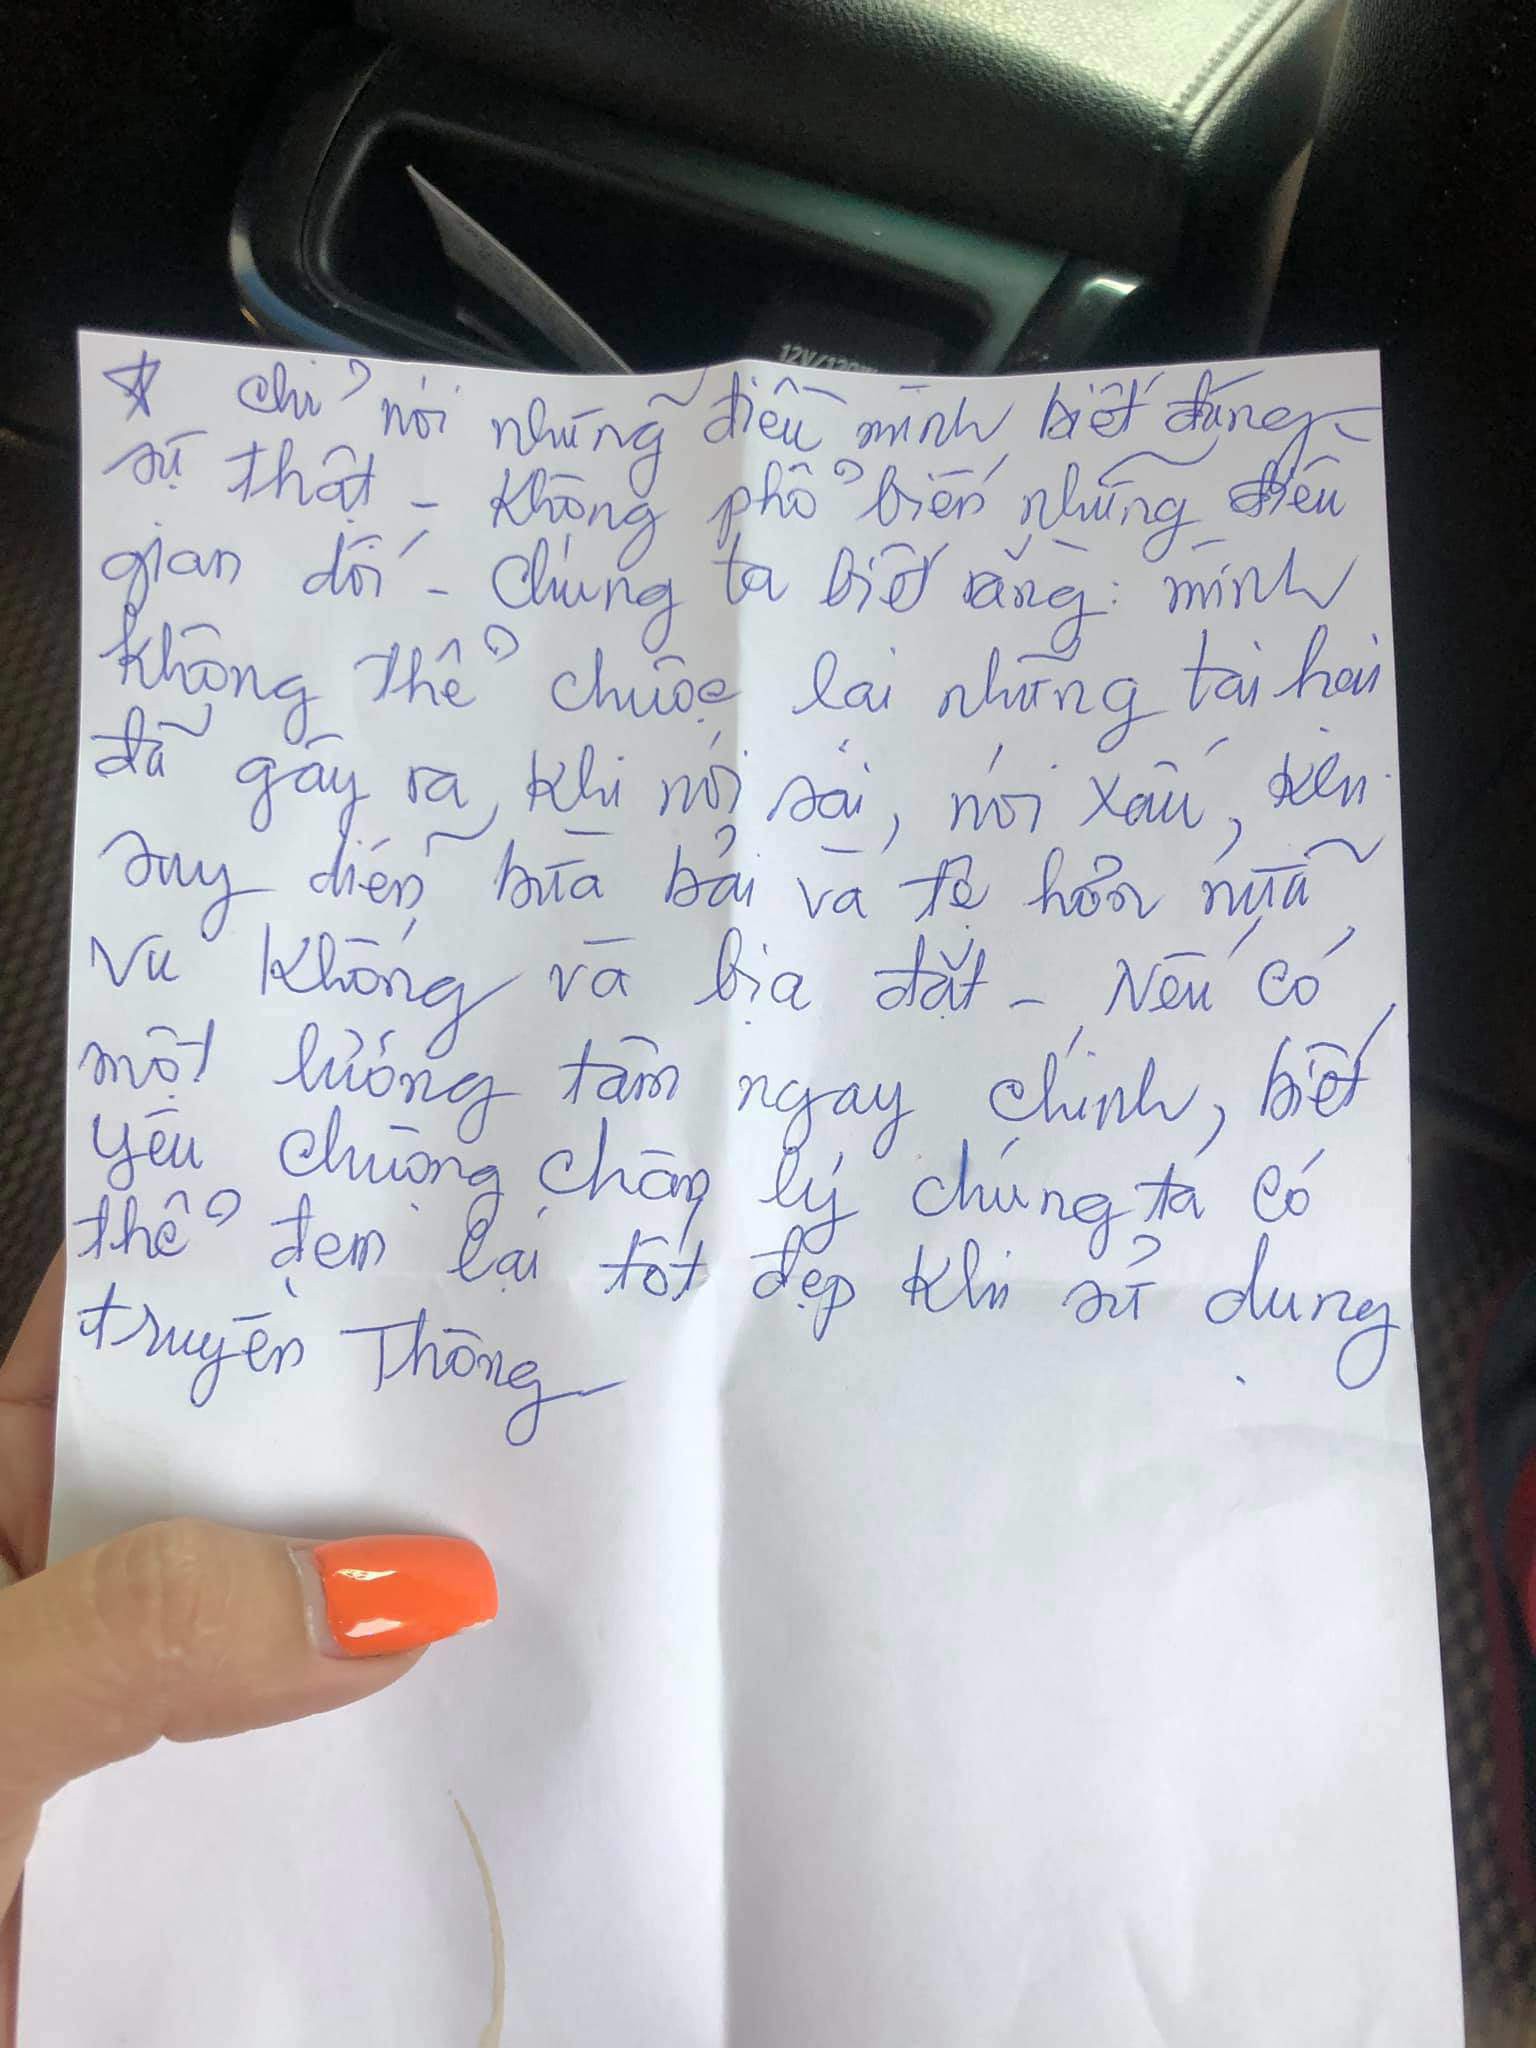 12V/120W
☆ Chỉ nói những điều mình biết đúng
sự thật - Không phổ biến những điều
gian dối - Chúng ta biết rằng: mình
không thể chuộc lại những tai hại
đã gây ra, khi nói sai, nói xấu, khi
suy diễn bừa bãi và tệ hơn nữa
Vu Khống và bịa đặt - Nếu có
một lương tâm ngay chính, biết
yêu chuộng chân lý chúng ta có
thể đem lại tốt đẹp khi sử dụng
truyền Thông